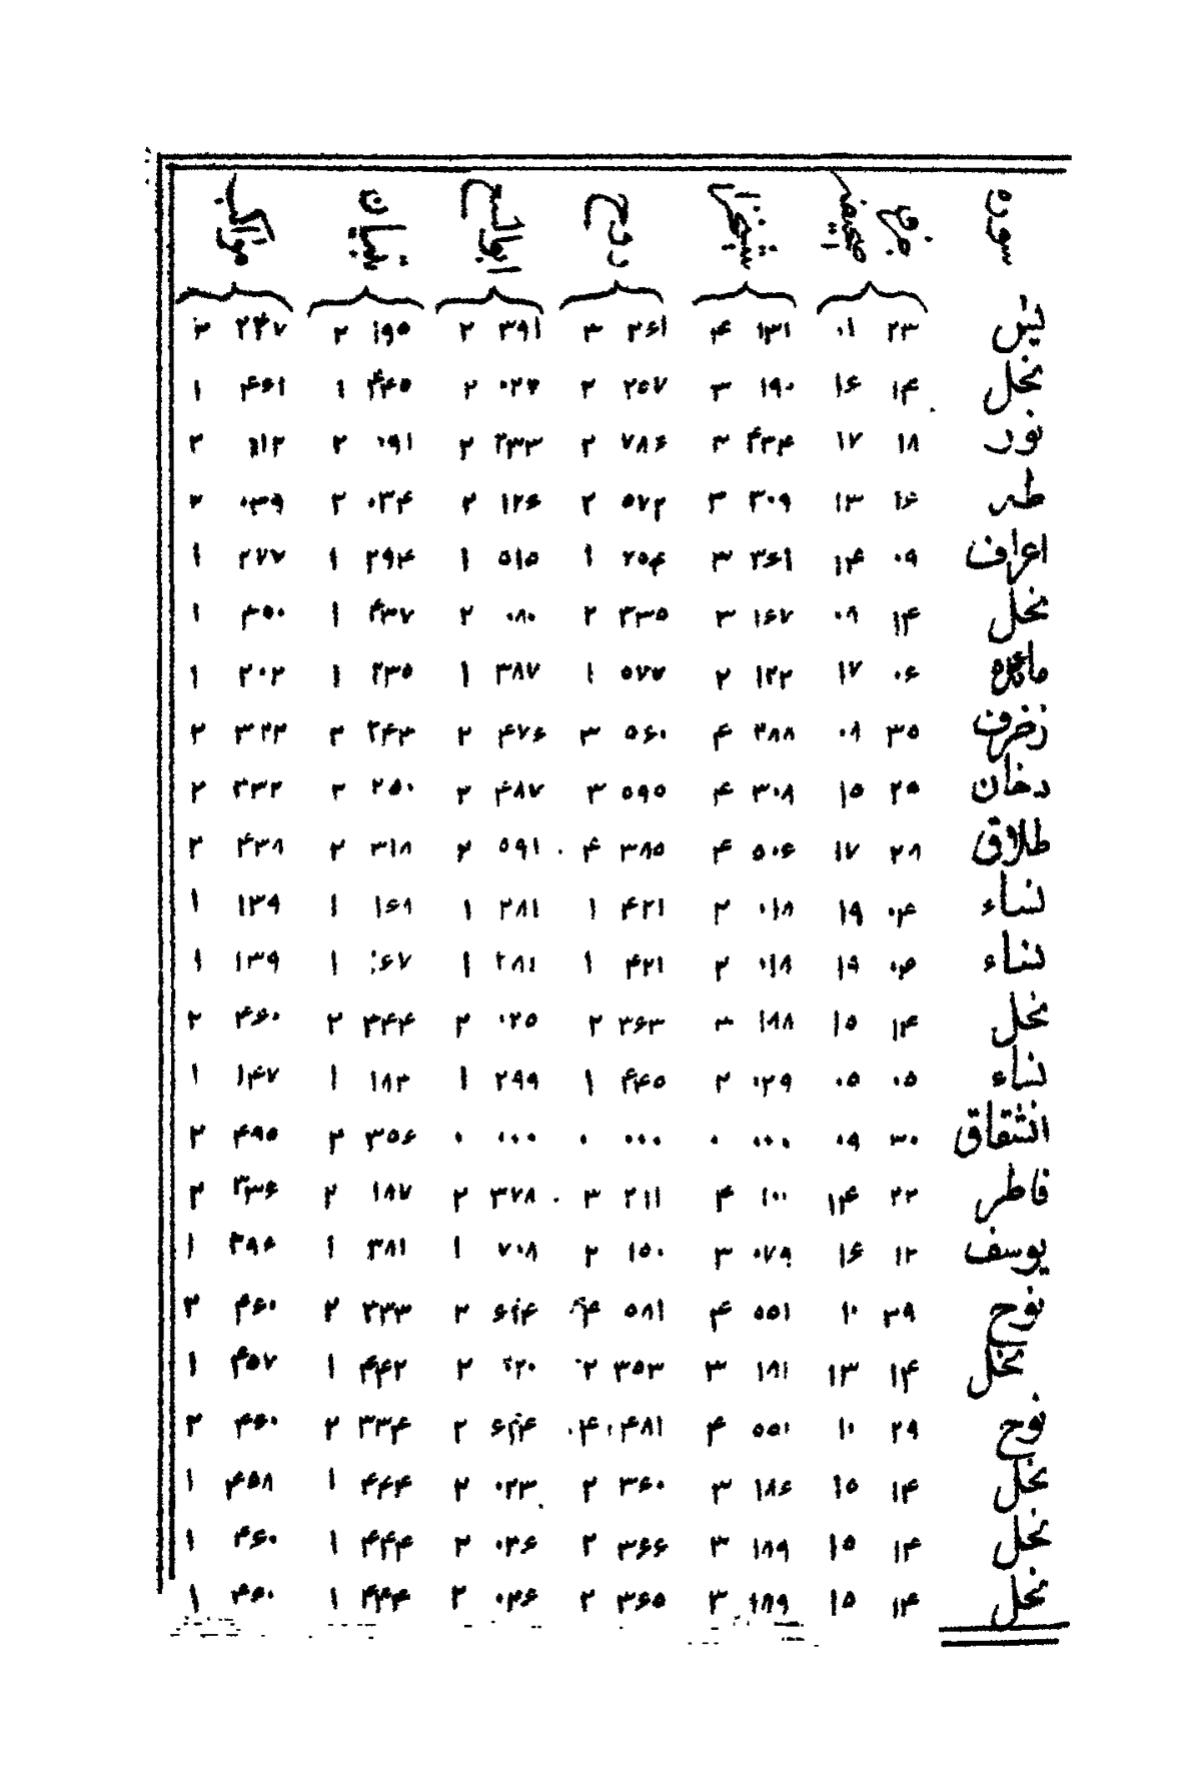 سوره حزب صفحه شیخزاده روح ابوالفتح تبیان
یٰسٓ ۲۳ ۰۱ ۱۳۱ ۴ ۳۶۱ ۳ ۳۹۱ ۲ ۱۹۵ ۲ ۲۴۷ ۲
نحل ۱۴ ۱۶ ۱۹۰ ۳ ۲۶۷ ۲ ۰۲۴ ۲ ۴۴۵ ۱ ۴۶۱ ۱
نور ۱۸ ۱۷ ۴۳۴ ۳ ۷۸۶ ۲ ۲۳۳ ۲ ۰۹۱ ۲ ۱۱۲ ۲
طه ۱۶ ۱۳ ۳۰۹ ۳ ۵۷۲ ۲ ۱۲۶ ۲ ۰۳۴ ۲ ۰۳۹ ۲
اعراف ۰۹ ۱۴ ۳۶۱ ۳ ۲۵۴ ۱ ۵۱۵ ۱ ۲۹۴ ۱ ۲۷۷ ۱
نحل ۱۴ ۰۸ ۱۶۷ ۳ ۳۳۵ ۲ ۰۸۰ ۲ ۴۳۷ ۱ ۴۵۰ ۱
مائده ۰۶ ۱۷ ۱۲۲ ۲ ۵۷۷ ۱ ۳۸۷ ۱ ۲۳۵ ۱ ۲۰۲ ۱
زخرف ۲۵ ۰۸ ۲۸۸ ۴ ۵۶۰ ۳ ۴۷۶ ۲ ۲۴۳ ۲ ۳۲۲ ۲
دخان ۲۵ ۱۵ ۳۰۸ ۴ ۵۹۵ ۳ ۴۸۷ ۲ ۲۵۰ ۲ ۳۳۲ ۲
طلاق ۲۸ ۱۷ ۵۰۶ ۴ ۳۸۵ ۴ ۵۹۱ ۲ ۳۱۸ ۲ ۴۳۸ ۲
نساء ۰۴ ۱۹ ۰۱۸ ۲ ۴۲۱ ۱ ۲۸۱ ۱ ۱۶۸ ۱ ۱۳۹ ۱
نساء ۰۴ ۱۹ ۰۱۸ ۲ ۴۲۱ ۱ ۲۸۱ ۱ ۱۶۷ ۱ ۱۳۹ ۱
نحل ۱۴ ۱۵ ۱۸۸ ۳ ۳۶۳ ۲ ۰۲۵ ۲ ۳۴۴ ۲ ۴۶۰ ۲
نساء ۰۵ ۰۵ ۰۲۹ ۲ ۴۴۵ ۱ ۲۹۹ ۱ ۱۸۳ ۱ ۱۴۷ ۱
انشقاق ۳۰ ۰۹ ۰۰۰ ۰ ۰۰۰ ۰ ۰۰۰ ۰ ۳۵۶ ۲ ۴۹۵ ۲
فاطر ۲۲ ۱۴ ۱۰۰ ۴ ۲۱۱ ۳ ۳۷۸ ۲ ۱۸۷ ۲ ۲۳۶ ۲
یوسف ۱۲ ۱۶ ۰۷۹ ۳ ۱۵۰ ۲ ۷۰۸ ۱ ۳۸۱ ۱ ۳۹۶ ۱
نوح ۲۹ ۱۰ ۵۵۱ ۴ ۵۸۱ ۴ ۶۱۴ ۲ ۳۳۳ ۲ ۴۶۰ ۲
نحل ۱۴ ۱۳ ۱۸۱ ۳ ۳۵۳ ۲ ۰۲۰ ۲ ۴۴۲ ۱ ۴۵۷ ۱
نوح ۲۹ ۱۰ ۵۵۱ ۴ ۴۸۱ ۴ ۶۱۴ ۲ ۳۳۴ ۲ ۴۶۰ ۲
نحل ۱۴ ۱۵ ۱۸۶ ۳ ۳۶۰ ۲ ۰۲۳ ۲ ۴۴۴ ۱ ۴۵۸ ۱
نحل ۱۴ ۱۵ ۱۸۹ ۳ ۳۶۶ ۲ ۰۲۶ ۲ ۴۴۴ ۱ ۴۶۰ ۱
نحل ۱۴ ۱۵ ۱۸۹ ۳ ۳۶۵ ۲ ۰۲۶ ۲ ۴۴۴ ۱ ۴۶۰ ۱